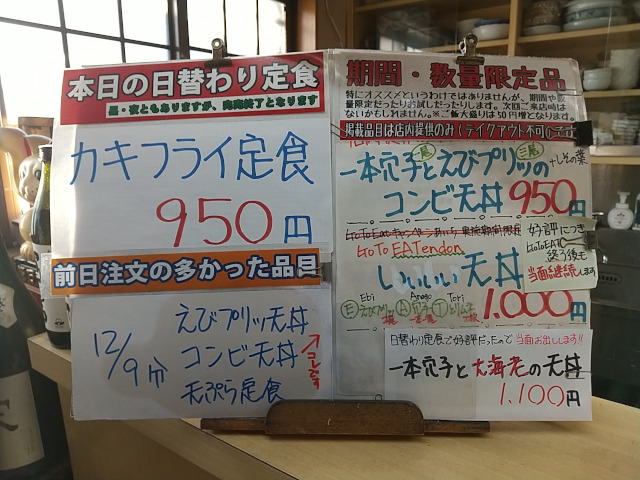 本日の日替わり定食
昼・夜ともありますが、売切終了となります
カキフライ定食
950円
前日注文の多かった品目
12/9分
えびプリッ天丼
コンビ天丼
天ぷら定食
コレです
期間・数量限定品
特にオススメというわけではありませんが、期間や数
量限定だったりお試しだったりします。次回ご来店時は
ないかもしれません。※ご飯大盛りは50円増となります。
掲載品目は店内提供のみ(テイクアウト不可)です
一本穴子とえびプリッの
+しその葉
コンビ天丼 950円
GoToEatキャンペーンあいのり 実施期間限定
GoTo EATendon
いいいい天丼
1,000円
好評につき
GoToEAT
終了後も
当面継続します
Ebi Anago Tori
日替わり定食で好評だったので 当面お出しします!!
一本穴子と大海老の天丼
1,100円